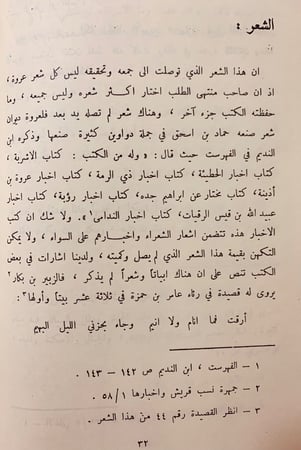 الشعر :
ان هذا الشعر الذي توصلت الى جمعه وتحقيقه ليس كل شعر عروة،
اذ ان صاحب منتهى الطلب اختار اكثر شعره وليس جميعه ، وما
حفظته الكتب جزء آخر ، وهناك شعر لم تصله يد بعد فلعروة ديوان
شعر صنعه حماد بن اسحق في جملة دواوين كثيرة صنعها وذكره ابن
النديم في الفهرست حيث قال : « وله من الكتب : كتاب الاشربة ،
كتاب اخبار الحطيئة، كتاب اخبار ذي الرمة، كتاب اخبار عروة بن
أذينة، كتاب مختار غن ابراهيم جده، كتاب اخبار رؤبة، كتاب اخبار
عبيد الله بن قيس الرقيات، كتاب اخبار الندامى١». ولا شك ان كتب
الاخبار هذه تتضمن اشعار الشعراء واخبارهم على السواء ، ولا يمكن
التكهن بقيمة هذا الشعر الذي لم يصل وكميته ، ولدينا اشارات في بعض
الكتب تنص على ان هناك ابياتاً وشعراً لم يذكر ، فالزبير بن بكار٢
يروى له قصيدة في رثاء عامر بن حمزة في ثلاثة عشر بيتاً وأولها٣:
أرقت فما انام ولا انيم وجاء بحزني الليل البهيم
١ - الفهرست ، ابن النديم ص ١٤٢ - ١٤٣ .
٢ - جمهرة نسب قريش واخبارها ١/٥٨ .
٣ - انظر القصيدة رقم ٤٤ من هذا الشعر .
٣٢